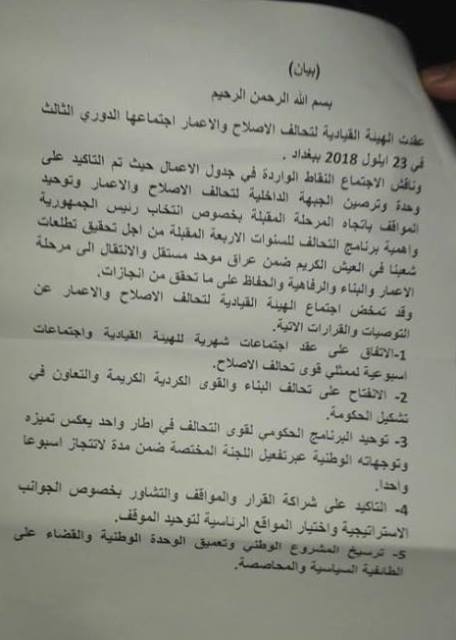 (بيان)
بسم الله الرحمن الرحيم
عقدت الهيئة القيادية لتحالف الاصلاح والاعمار اجتماعها الدوري الثالث
في 23 ايلول 2018 ببغداد .
وناقش الاجتماع النقاط الواردة في جدول الاعمال حيث تم التاكيد على
وحدة وترصين الجبهة الداخلية لتحالف الاصلاح والاعمار وتوحيد
المواقف باتجاه المرحلة المقبلة بخصوص انتخاب رئيس الجمهورية
واهمية برنامج التحالف للسنوات الاربعة المقبلة من اجل تحقيق تطلعات
شعبنا في العيش الكريم ضمن عراق موحد مستقل والانتقال الى مرحلة
الاعمار والبناء والرفاهية والحفاظ على ما تحقق من انجازات.
وقد تمخض اجتماع الهيئة القيادية لتحالف الاصلاح والاعمار عن
التوصيات والقرارات الاتية.
1-الاتفاق على عقد اجتماعات شهرية للهيئة القيادية واجتماعات
اسبوعية لممثلي قوى تحالف الاصلاح.
2- الانفتاح على تحالف البناء والقوى الكردية الكريمة والتعاون في
تشكيل الحكومة.
3- توحيد البرنامج الحكومي لقوى التحالف في اطار واحد يعكس تميزه
وتوجهاته الوطنية عبرتفعيل اللجنة المختصة ضمن مدة لاتتجاز اسبوعا
واحدا.
4- التاكيد على شراكة القرار والمواقف والتشاور بخصوص الجوانب
الاستراتيجية واختيار المواقع الرئاسية لتوحيد الموقف.
5- ترسيخ المشروع الوطني وتعميق الوحدة الوطنية والقضاء على
الطائفية السياسية والمحاصصة.